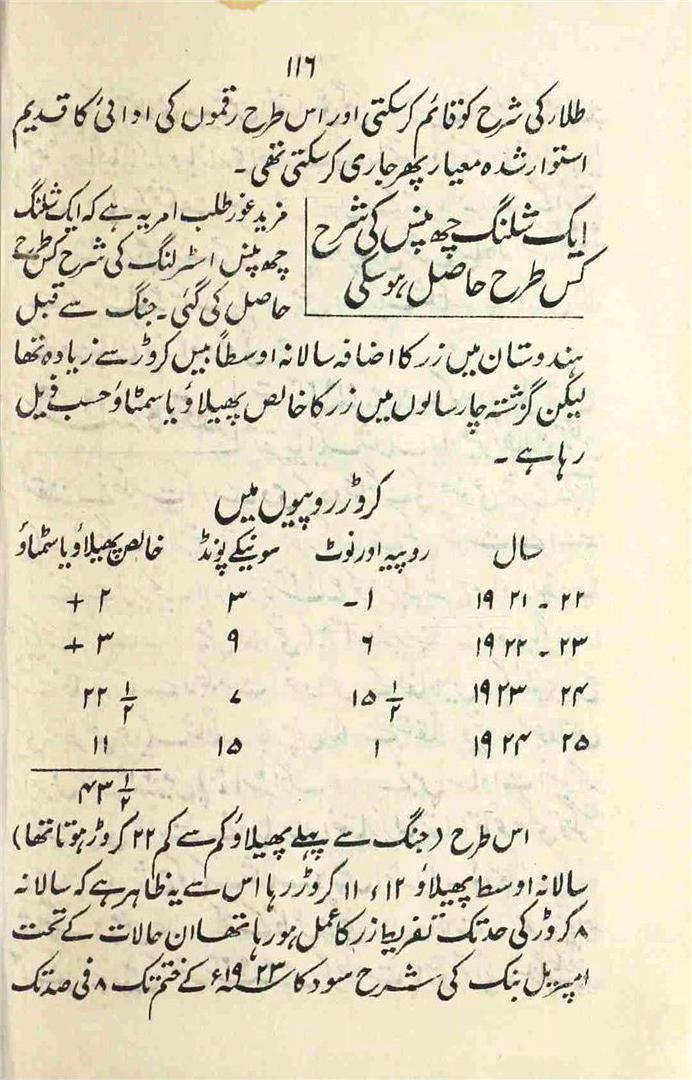 ۱۱۶
طلار کی شرح کو قائم کر سکتی اور اس طرح رقموں کی ادائی کا قدیم
استوار شدہ معیار پھر جاری کر سکتی تھی۔
ایک شلنگ چھ پنس کی شرح
کس طرح حاصل ہوسکی
مزید غور طلب امر یہ ہے کہ ایک شلنگ
چھ پنس اسٹرلنگ کی شرح کس طرح
حاصل کی گئی۔ جنگ سے قبل
ہندوستان میں زر کا اضافہ سالانہ اوسطاً بیس کروڑ سے زیادہ تھا
لیکن گزشتہ چار سالوں میں زر کا خالص پھیلاؤ یا سمٹاؤ حسب ذیل
رہا ہے۔
کروڑ روپیوں میں
سال روپیہ اور نوٹ سونیکے پونڈ خالص پھیلاؤ یا سمٹاؤ
۲۲ - ۲۱ ۱۹ ۱- ۳ ۲ +
۲۳ - ۲۲ ۱۹ ۶ ۹ ۳ +
۲۴ ۲۳ ۱۹ ۱۵ ۱/۲ ۷ ۲۲ ۱/۲
۲۵ ۲۴ ۱۹ ۱ ۱۵ ۱۱
۴۳ ۱/۲
اس طرح (جنگ سے پہلے پھیلاؤ کم سے کم ۲۲ کروڑ ہوتا تھا)
سالانہ اوسط پھیلاؤ ۱۲ء۱۱ کروڑ رہا اس سے یہ ظاہر ہے کہ سالانہ
۸ کروڑ کی حد تک تفریط زر کا عمل ہو رہا تھا ان حالات کے تحت
امپریل بنک کی شرح سود کا ۱۹۲۳ء کے ختم تک ۸ فی صد تک